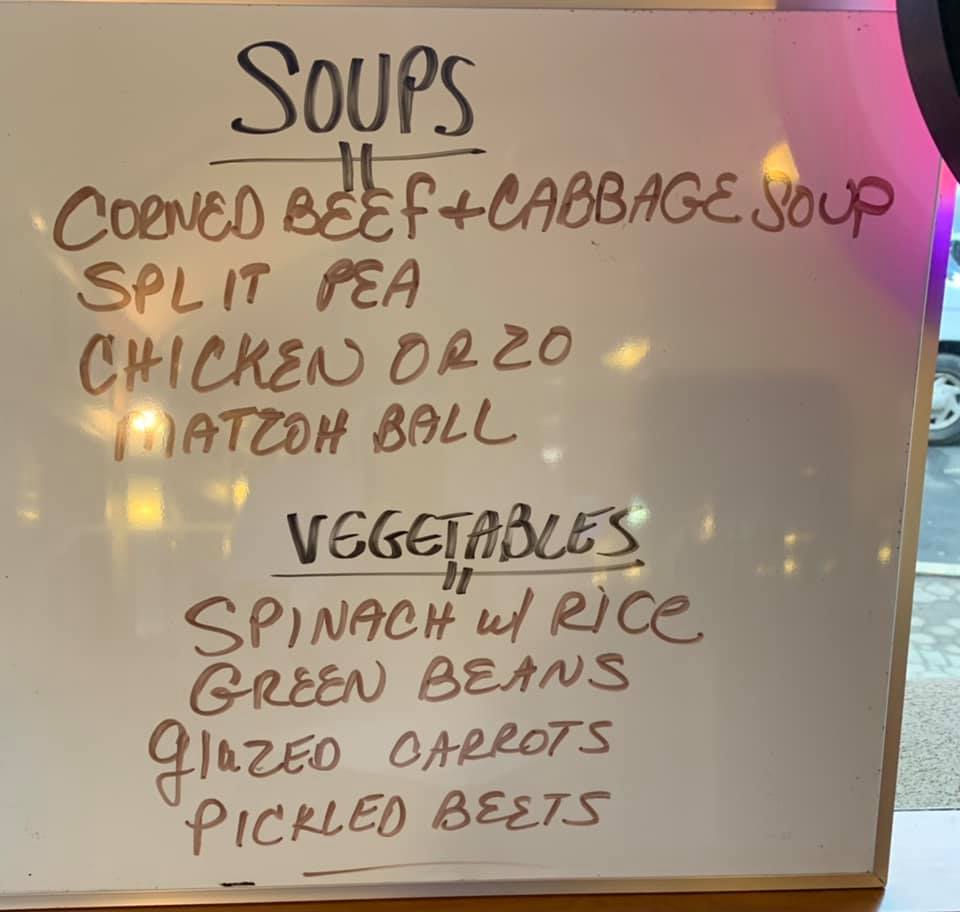 SOUPS
CORNED BEEF + CABBAGE SOUP
SPLIT PEA
CHICKEN ORZO
MATZOH BALL
VEGETABLES
SPINACH w/ RICE
GREEN BEANS
glazed CARROTS
PICKLED BEETS